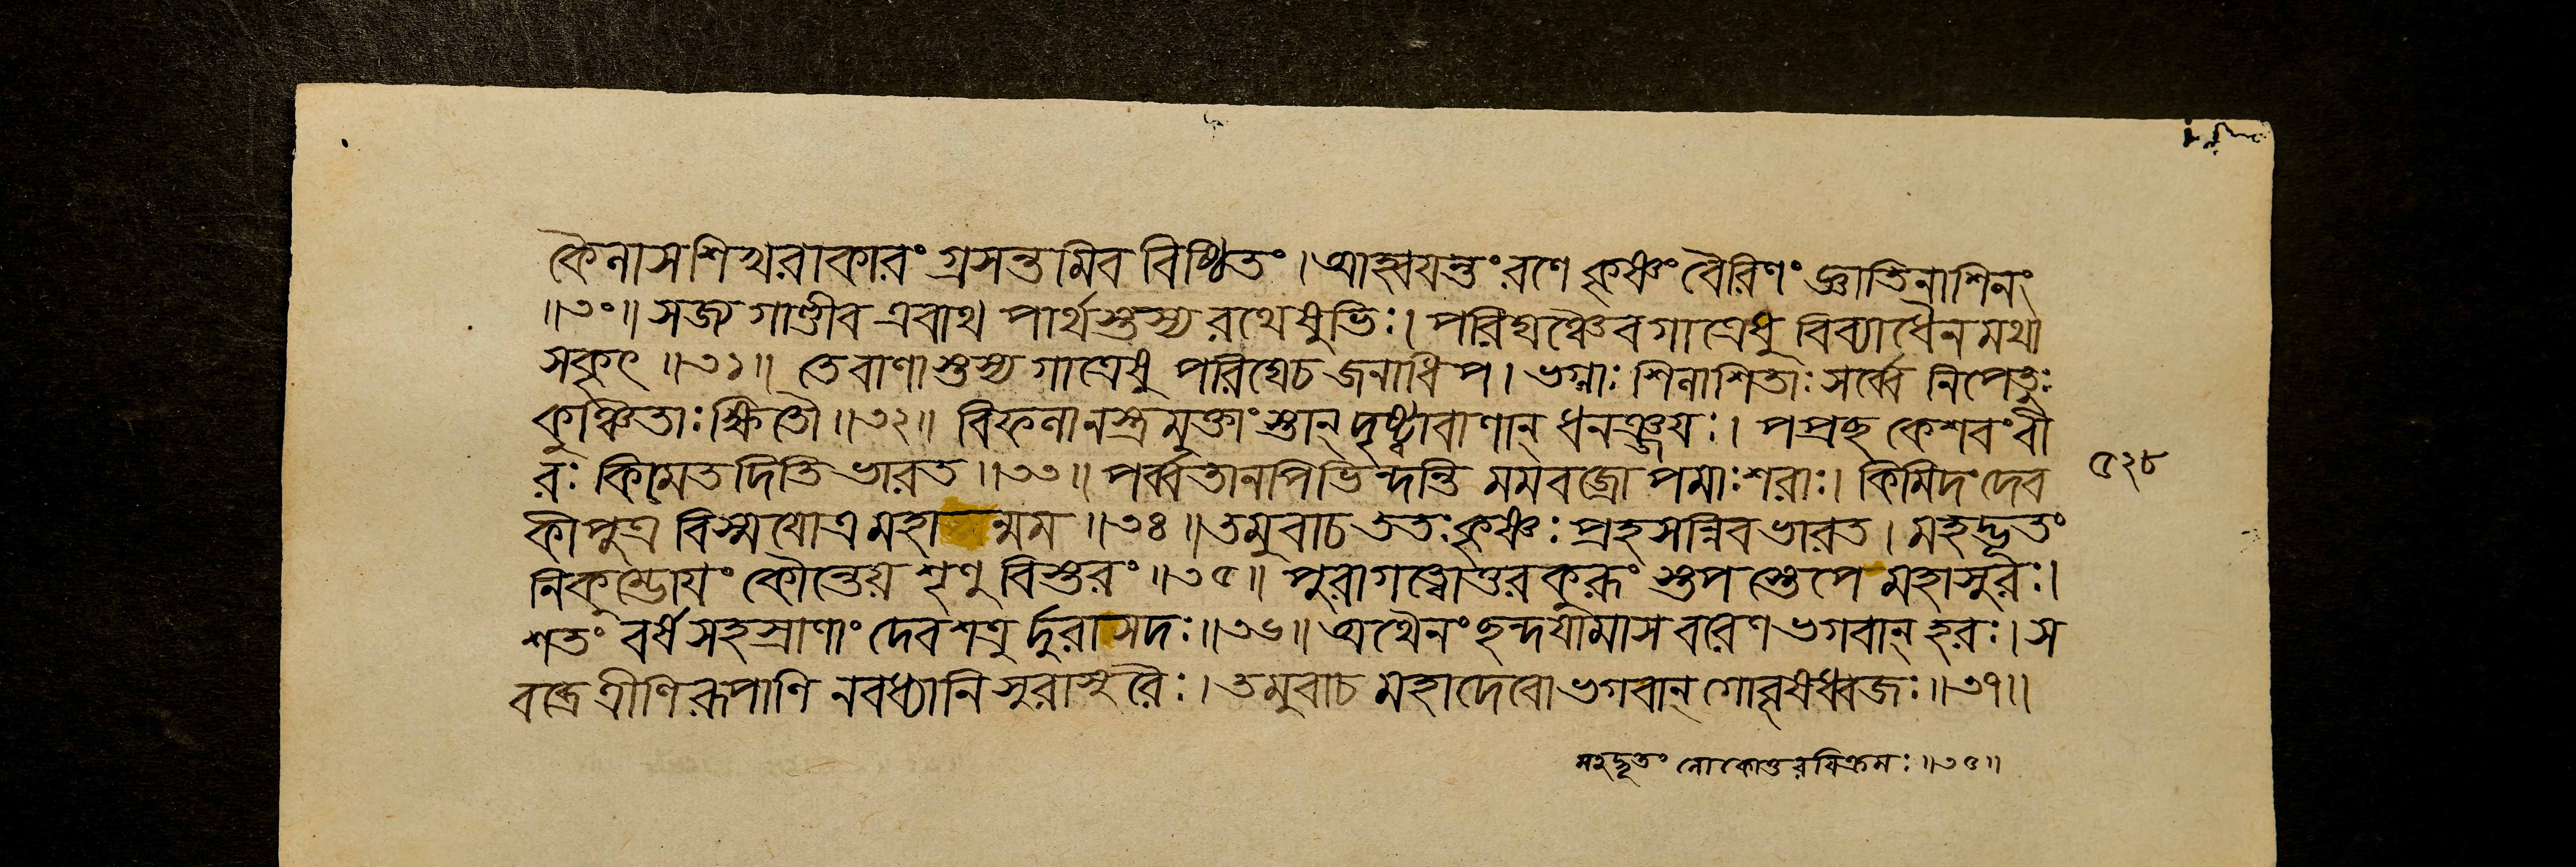 কৈলাসশিখরাকারং গ্রসন্তমিব বিষ্ঠিতং । আহ্বযন্তং রণে কৃষ্ণং বৈরিণং জ্ঞাতিনাশিনং
॥৩০॥ সজ্জগাণ্ডীব এবাথ পার্থস্তস্য রথেষুভিঃ । পরিঘঞ্চৈব গাত্রেষু বিব্যাধৈনমথা
সকৃৎ ॥৩১॥ তে বাণাস্তস্য গাত্রেষু পরিঘেচ জনাধিপ । ভগ্নাঃ শিলাশিতাঃ সর্ব্বে নিপেতুঃ
কুঞ্চিতাঃ ক্ষিতৌ ॥৩২॥ বিফলানস্ত্রমুক্তাংস্তান্ দৃষ্ট্বা বাণান্ ধনঞ্জযঃ । পপ্রছ কেশবং বী
রঃ কিমেতদিতি ভারত ॥৩৩॥ পর্ব্বতানপি ভিন্দন্তি মম বজ্রোপমাঃ শরাঃ । কিমিদং দেব
কীপুত্র বিস্ময়োত্র মহান্মম ॥৩৪॥ তমুবাচ ততঃ কৃষ্ণঃ প্রহসন্নিব ভারত । মহদ্ভূতং
নিকুম্ভোযং কৌন্তেয় শৃণু বিস্তরং ॥৩৫॥ পুরা গত্বোত্তরকুরূং স্তপস্তেপে মহাসুরঃ ।
শতং বর্ষসহস্রাণাং দেবশত্রুর্দুরাসদঃ ॥৩৬॥ অথৈনং ছন্দযামাস বরেণ ভগবান্ হরঃ । স
বব্রে ত্রীণি রূপাণি নবধ্যানি সুরাসুরৈঃ । তমুবাচ মহাদেবো ভগবান্ গোবৃষধ্বজঃ ॥৩৭॥
৫২৮
মহদ্ভূতং লোকোত্তরবিক্রমঃ ॥৩৫॥